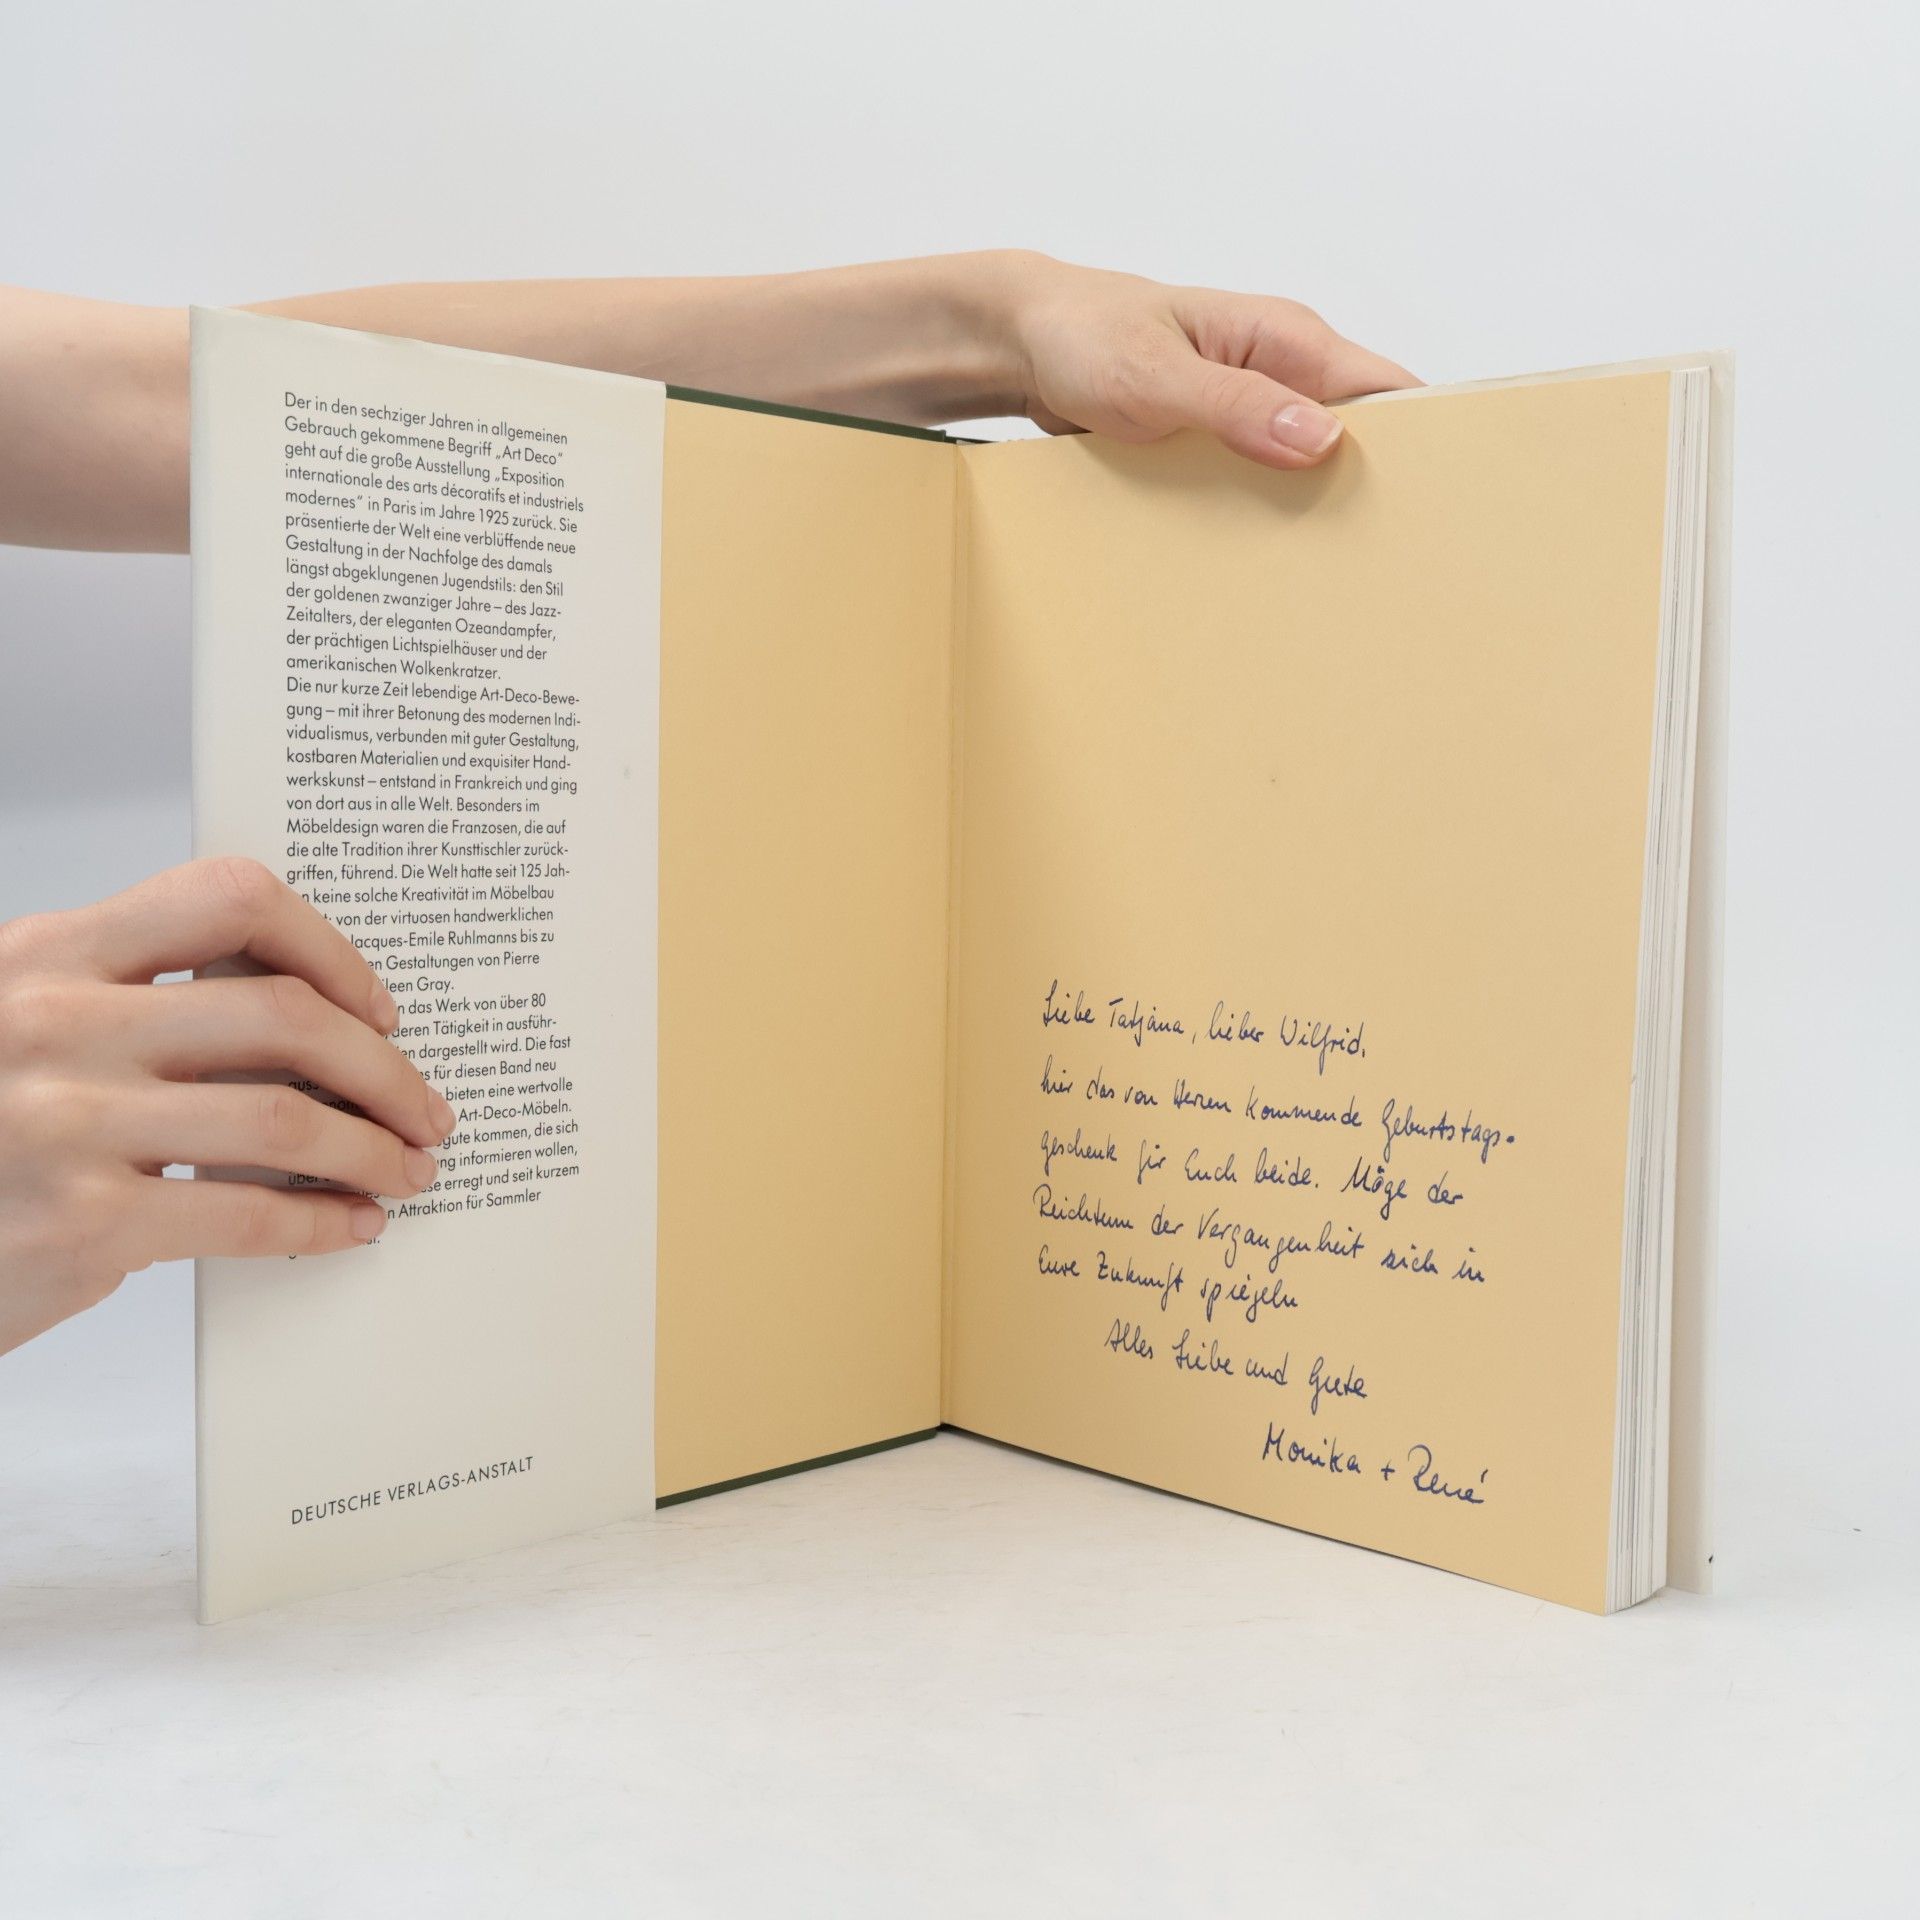 Der in den sechziger Jahren in allgemeinen
Gebrauch gekommene Begriff „Art Deco“
geht auf die große Ausstellung „Exposition
internationale des arts décoratifs et industriels
modernes“ in Paris im Jahre 1925 zurück. Sie
präsentierte der Welt eine verblüffende neue
Gestaltung in der Nachfolge des damals
längst abgeklungenen Jugendstils: den Stil
der goldenen zwanziger Jahre – des Jazz-
Zeitalters, der eleganten Ozeandampfer,
der prächtigen Lichtspielhäuser und der
amerikanischen Wolkenkratzer.
Die nur kurze Zeit lebendige Art-Deco-Bewe-
gung – mit ihrer Betonung des modernen Indi-
vidualismus, verbunden mit guter Gestaltung,
kostbaren Materialien und exquisiter Hand-
werkskunst – entstand in Frankreich und ging
von dort aus in alle Welt. Besonders im
Möbeldesign waren die Franzosen, die auf
die alte Tradition ihrer Kunsttischler zurück-
griffen, führend. Die Welt hatte seit 125 Jah-
keine solche Kreativität im Möbelbau
von der virtuosen handwerklichen
Jacques-Emile Ruhlmanns bis zu
Gestaltungen von Pierre
Gray.
das Werk von über 80
deren Tätigkeit in ausführ-
dargestellt wird. Die fast
für diesen Band neu
bieten eine wertvolle
Art-Deco-Möbeln.
kommen, die sich
informieren wollen,
erregt und seit kurzem
Attraktion für Sammler
DEUTSCHE VERLAGS-ANSTALT
Liebe Tatjána, lieber Wilfrid,
hier das von Herzen kommende Geburtstags-
geschenk für Euch beide. Möge der
Reichtum der Vergangenheit sich in
Eure Zukunft spiegeln
Alles Liebe und Gute
Monika + René